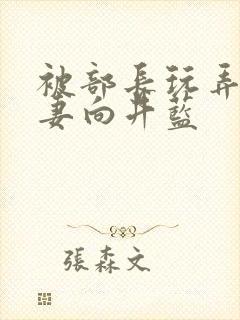 被部長玩弄
妻向井藍
張森文